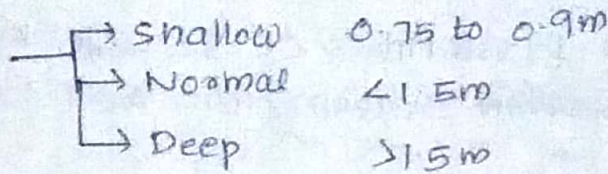 Shallow 0.75 to 0.9m
Normal <1.5m
Deep >1.5m